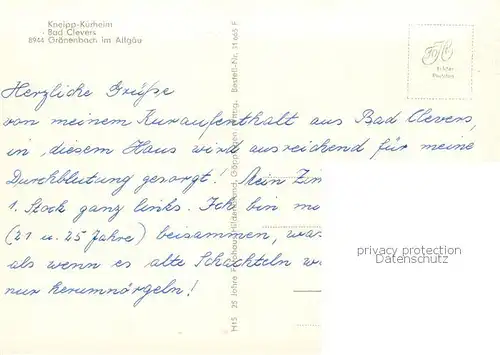 Kneipp-Kurheim
Bad Clevers
8944 Grönenbach im Allgäu
Herzliche Grüße
von meinem Kuraufenthalt aus Bad Clevers,
in diesem Haus wird ausreichend für meine
Durchblutung gesorgt! Mein Zim
1. Stock ganz links. Ich bin
(21 u. 25 Jahre) beisammen, was
als wenn es alte Schachteln
nur herumnörgeln!
privacy protection
Datenschutz
Bestell-Nr. 11 665 F
H15 25 Jahre Göppingen
Echte